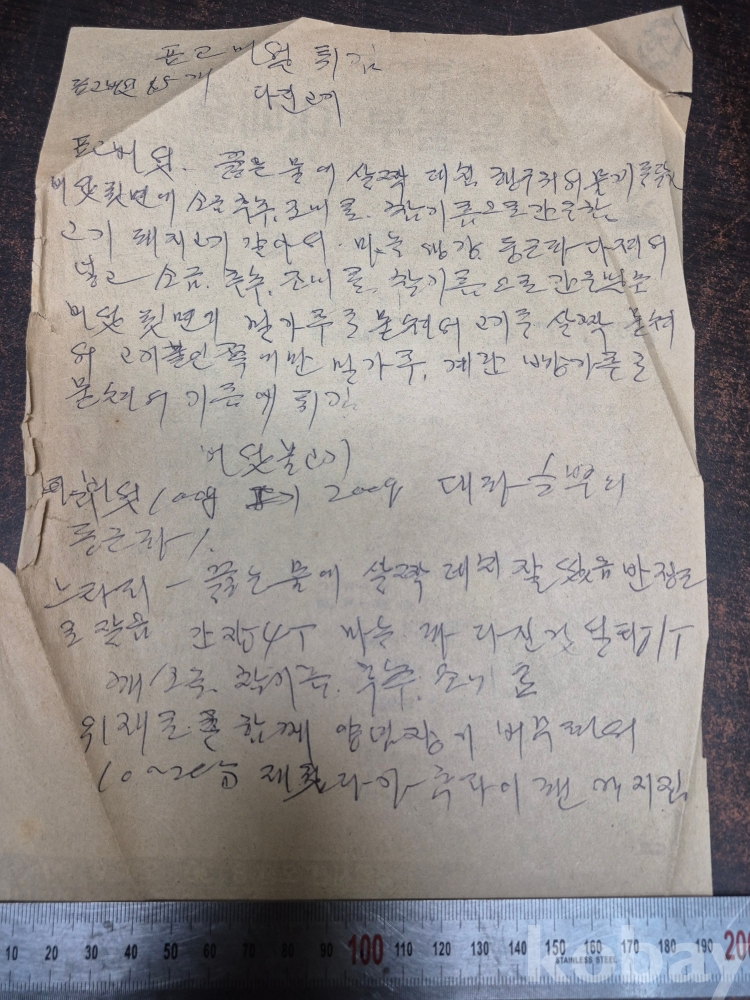 표고버섯 튀김
표고버섯 15개 다진고기
표고버섯. 끓는 물에 살짝 데친 헹구워서 물기를
버섯 뒷면에 소금 후추, 조미료. 참기름으로 간을 한
고기 돼지고기 갈아서. 마늘 생강, 둥근파 다져서
넣고 소금. 후추, 조미료, 참기름으로 간을
버섯 뒷면에 밀가루를 묻혀서 고기를 살짝 묻혀
서 고기 붙인쪽에만 밀가루, 계란 빵가루를
묻혀서 기름에 튀김
버섯불고기
100g 고기 200g 대파 뿌리
둥근파 1.
느타리 - 끓는 물에 살짝 데쳐 잘 씻음 반정도
로 짤음 간장 4T 마늘 파 다진것 설탕 1T
깨소금, 참기름. 후추. 조미료
위 재료를 함께 양념장에 버무려서
10~20분 재웠다가 후라이팬에 지진
10 20 30 40 50 60 70 80 90 100 110 120 130 140 150 160 170 180 190 200
STAINLESS STEEL
kobay